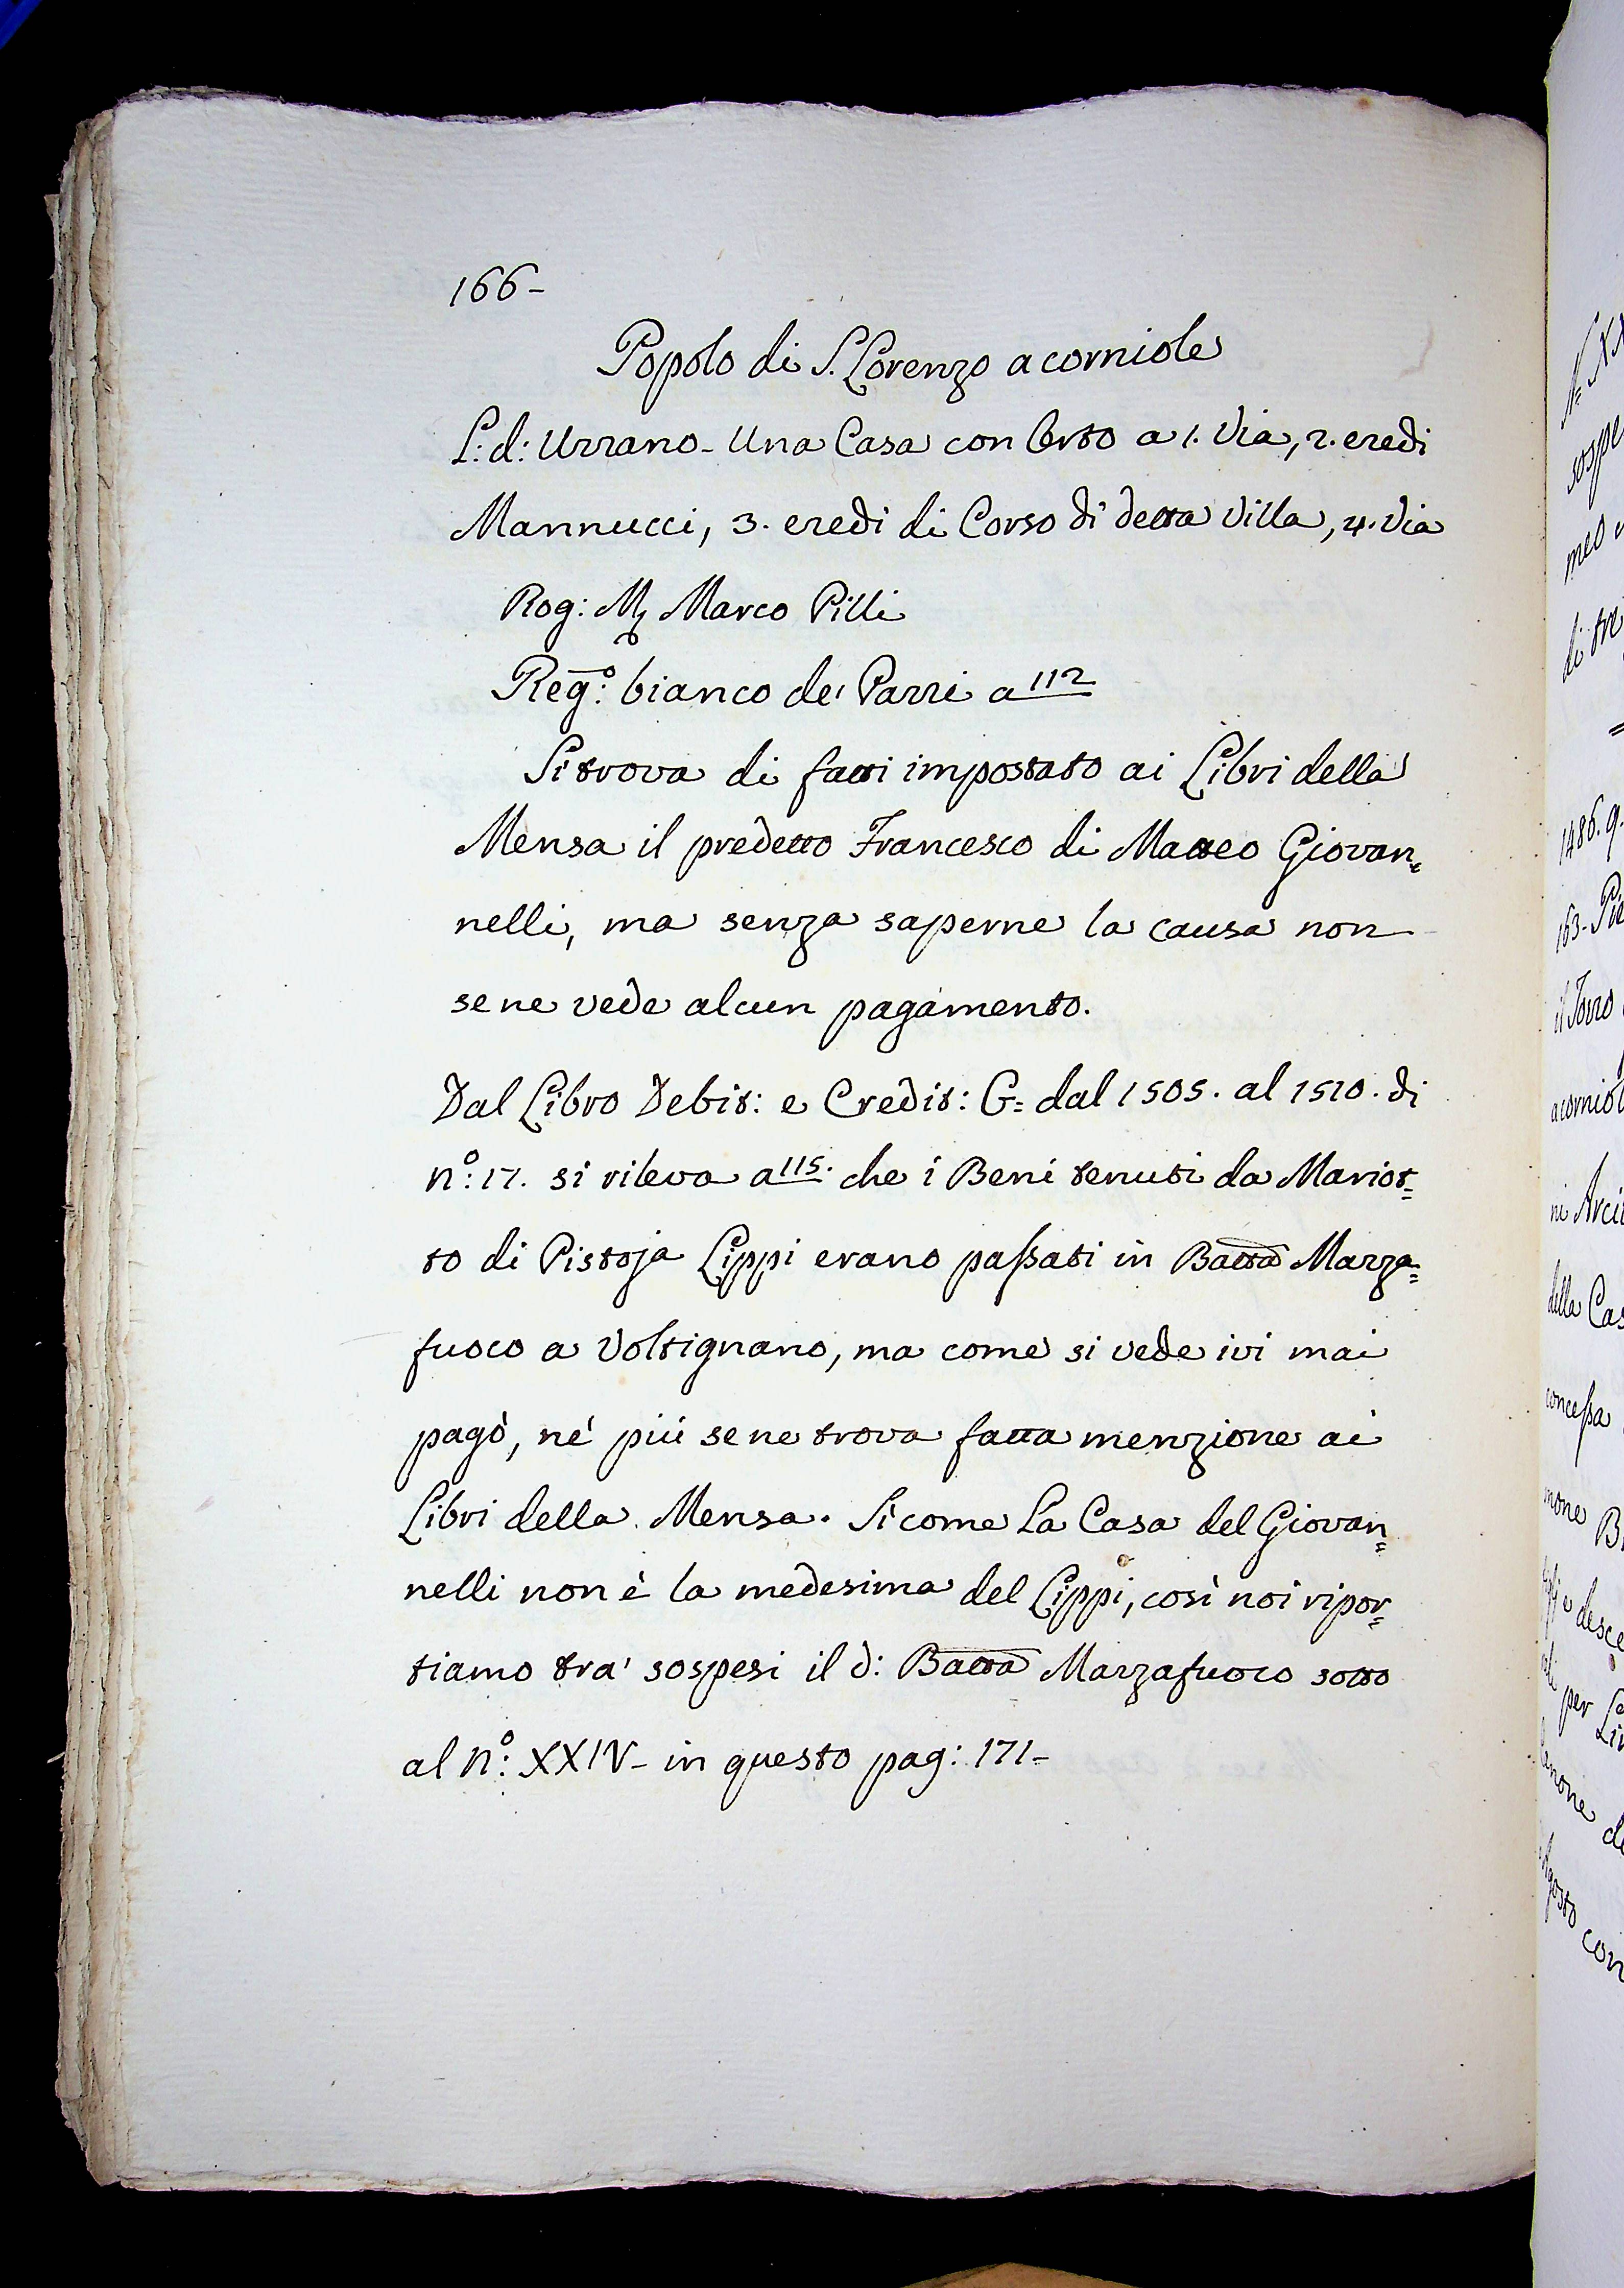 166-
Popolo di S. Lorenzo a corniole
L: d: Uzzano - Una Casa con Orto a 1. Via, 2. eredi
Mannucci, 3. eredi di Corso di detta Villa, 4. Via
Rog: Marco Pilli
Reg:º bianco de' Pazzi a 112
Si trova di fatti impostato ai Libri della
Mensa il predetto Francesco di Matteo Giovan=
nelli, ma senza saperne la causa non
se ne vede alcun pagamento.
Dal Libro Debit: e Credit: G= dal 1505. al 1510. di
nº: 17. si rileva a 115. che i Beni tenuti da Mariot=
to di Pistoja Lippi erano passati in Batta Mazza=
fuoco a Voltignano, ma come si vede ivi mai
pagò, nè più se ne trova fatta menzione ai
Libri della Mensa. Sicome La Casa del Giovan=
nelli non è la medesima del Lippi, così noi ripor=
tiamo tra' sospesi il d: Batta Mazzafuoco sotto
al Nº: XXIV- in questo pag: 171-
1486.
163-
della
concessa
per
con